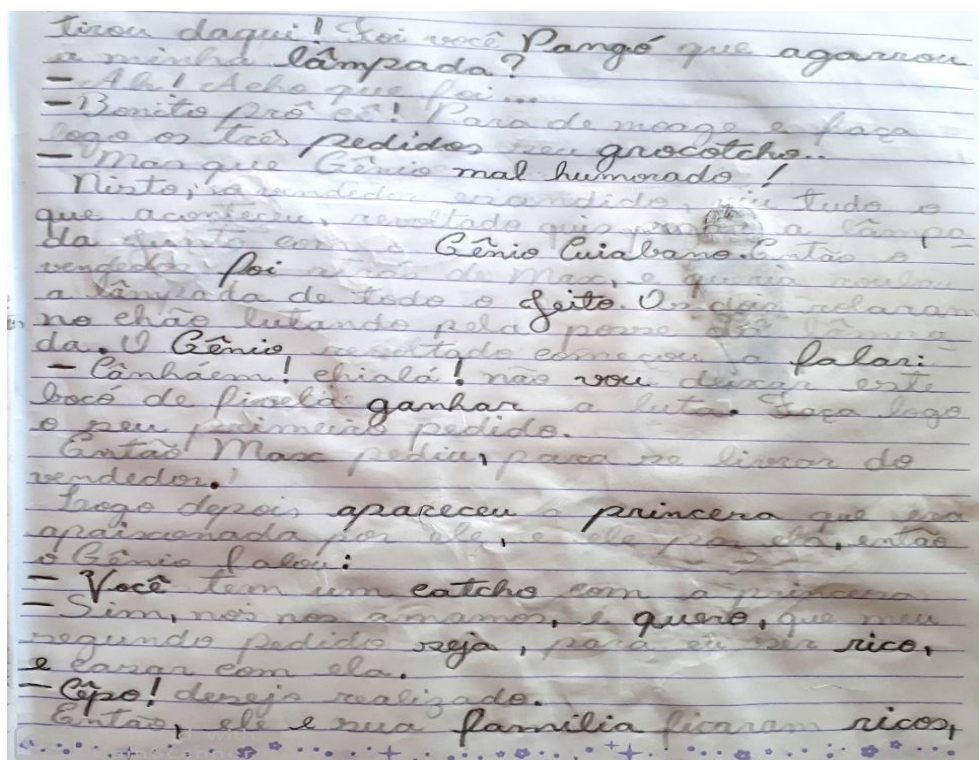 tirou daqui! Foi você Pangó que agarrou
a minha lâmpada?
- Ah! Acho que foi...
- Bonito prô cê! Para de moage e faça
logo os três pedidos seu grocotcho..
- Mas que Gênio mal humorado!
Nisto, o vendedor escondido, viu tudo o
que aconteceu, revoltado quis a lâmpa
da junto com o Gênio Cuiabano. Então o
vendedor foi atrás de Max, e queria roubar
a lâmpada de todo o jeito. Os dois rolaram
no chão lutando pela posse da lâmpa
da. O Gênio revoltado começou a falar:
- Cânháem! chialá! não vou deixar este
bocó de fivelá ganhar a luta. Faça logo
o seu primeiro pedido.
Então Max pediu, para se livrar do
vendedor.
Logo depois apareceu a princesa que era
apaixonada por ele, e ele por ela, então
o Gênio falou:
- Você tem um catcho com a princesa
- Sim, nois nos amamos, e quero, que meu
segundo pedido seja, para eu ser rico,
e casar com ela.
- Cêpo! desejo realizado.
Então, ele e sua familia ficaram ricos,